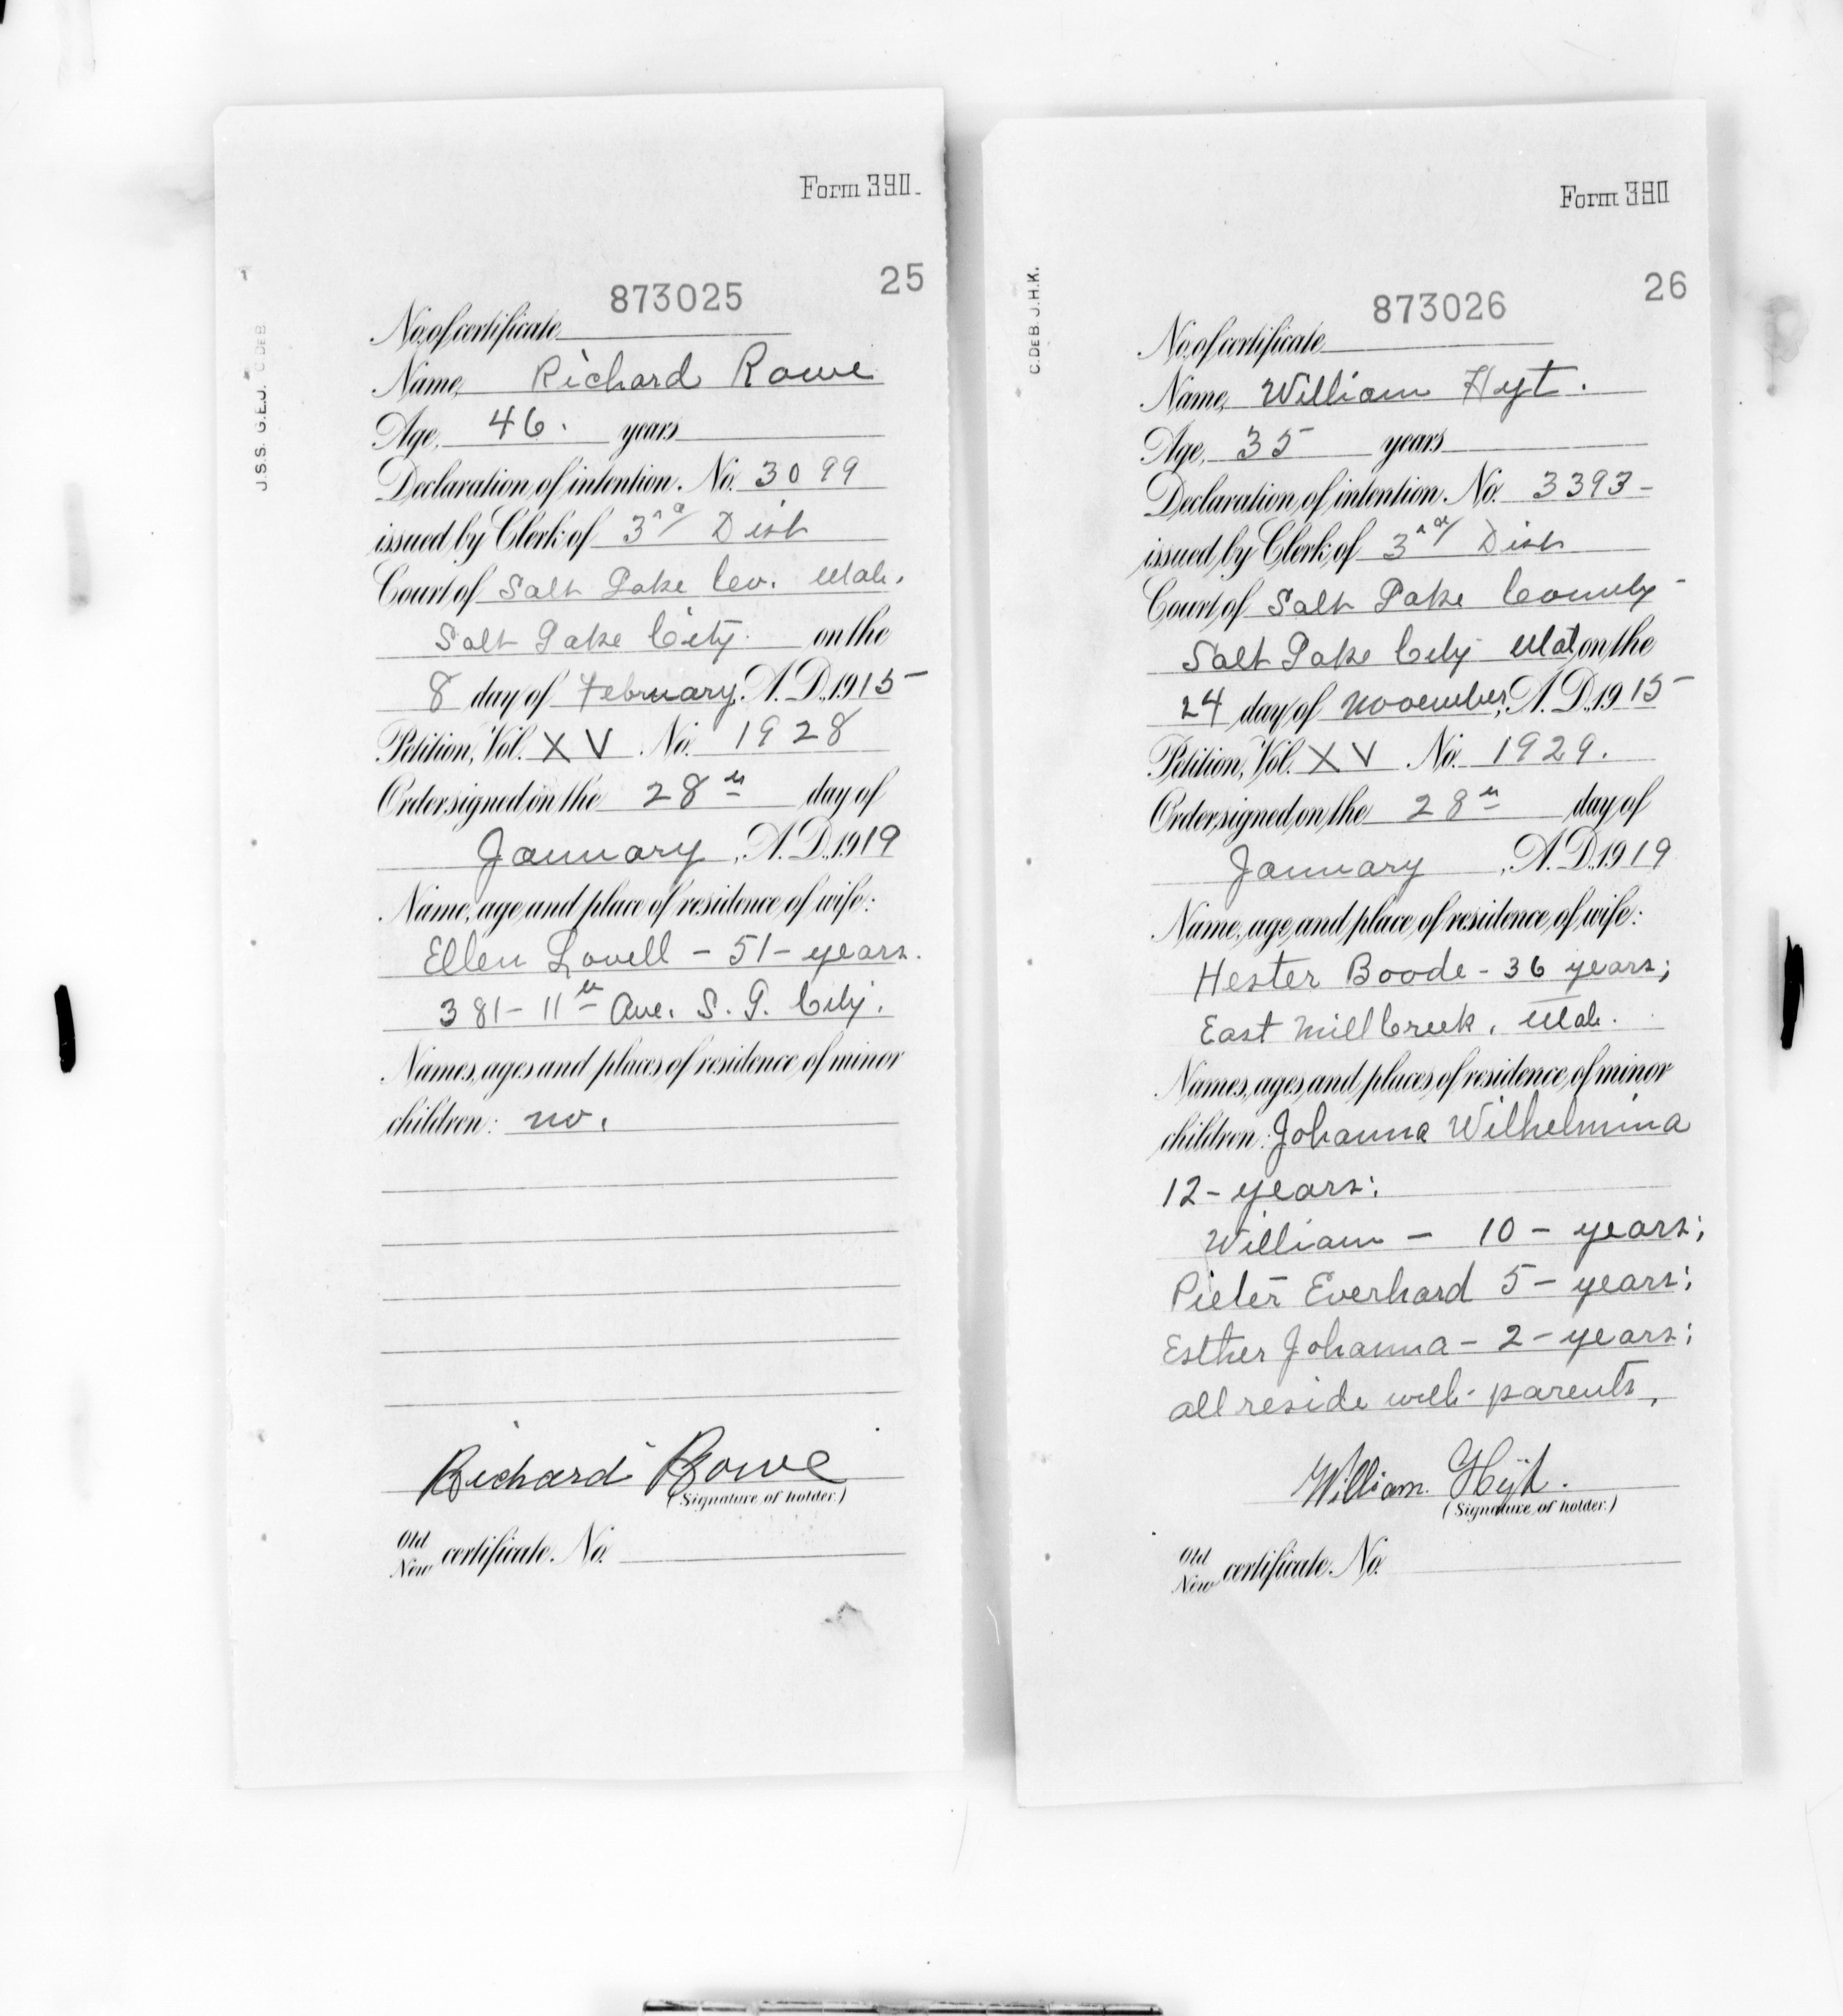 Form 390.
25
873025
No. of certificate
Name, Richard Rowe
Age, 46. years
Declaration of intention. No. 3099
issued by Clerk of 3rd Dist
Court of Salt Lake Co. Utah.
Salt Lake City. on the
8 day of February, A.D., 1915
Petition, Vol. XV No. 1928
Order signed on the 28th day of
January, A.D., 1919
Name, age and place of residence of wife:
Ellen Lovell - 51 - years.
381 - 11th Ave. S. L. City.
Names, ages and places of residence of minor
children: no.
Richard Rowe
(Signature of holder.)
Old
New certificate. No.
J.S.S. G.E.J. C DEB
Form 390
26
873026
No. of certificate
Name, William Hyt.
Age, 35 years
Declaration of intention. No. 3393 -
issued by Clerk of 3rd Dist
Court of Salt Lake County -
Salt Lake City Utah on the
24 day of November, A.D., 1915
Petition, Vol. XV No. 1929.
Order signed on the 28th day of
January, A.D., 1919
Name, age and place of residence of wife:
Hester Boode - 36 years;
East Mill Creek, Utah.
Names, ages and places of residence of minor
children: Johanna Wilhelmina
12 - years;
William - 10 - years;
Pieter Everhard 5 - years;
Esther Johanna - 2 - years;
all reside with parents,
William Hijt.
(Signature of holder.)
Old
New certificate. No.
C. DE B. J. H. K.